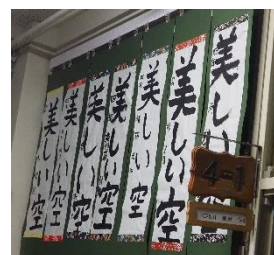 美しい空
美しい空
美しい空
美しい空
美しい空
美しい空
美しい空
4-1